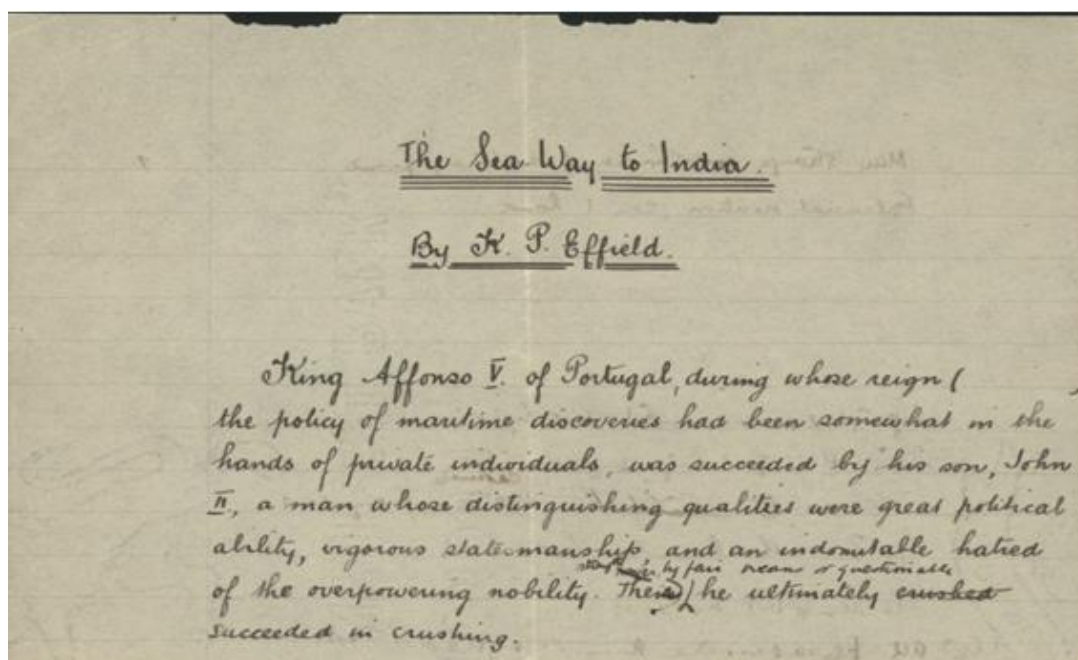 The Sea Way to India.
By K. P. Effield.
King Affonso V. of Portugal, during whose reign ( ,
the policy of maritime discoveries had been somewhat in the
hands of private individuals, was succeeded by his son, John
II, a man whose distinguishing qualities were great political
ability, vigorous statesmanship, and an indomitable hatred
by fair means or questionable
of the overpowering nobility. he ultimately crushed
succeeded in crushing.